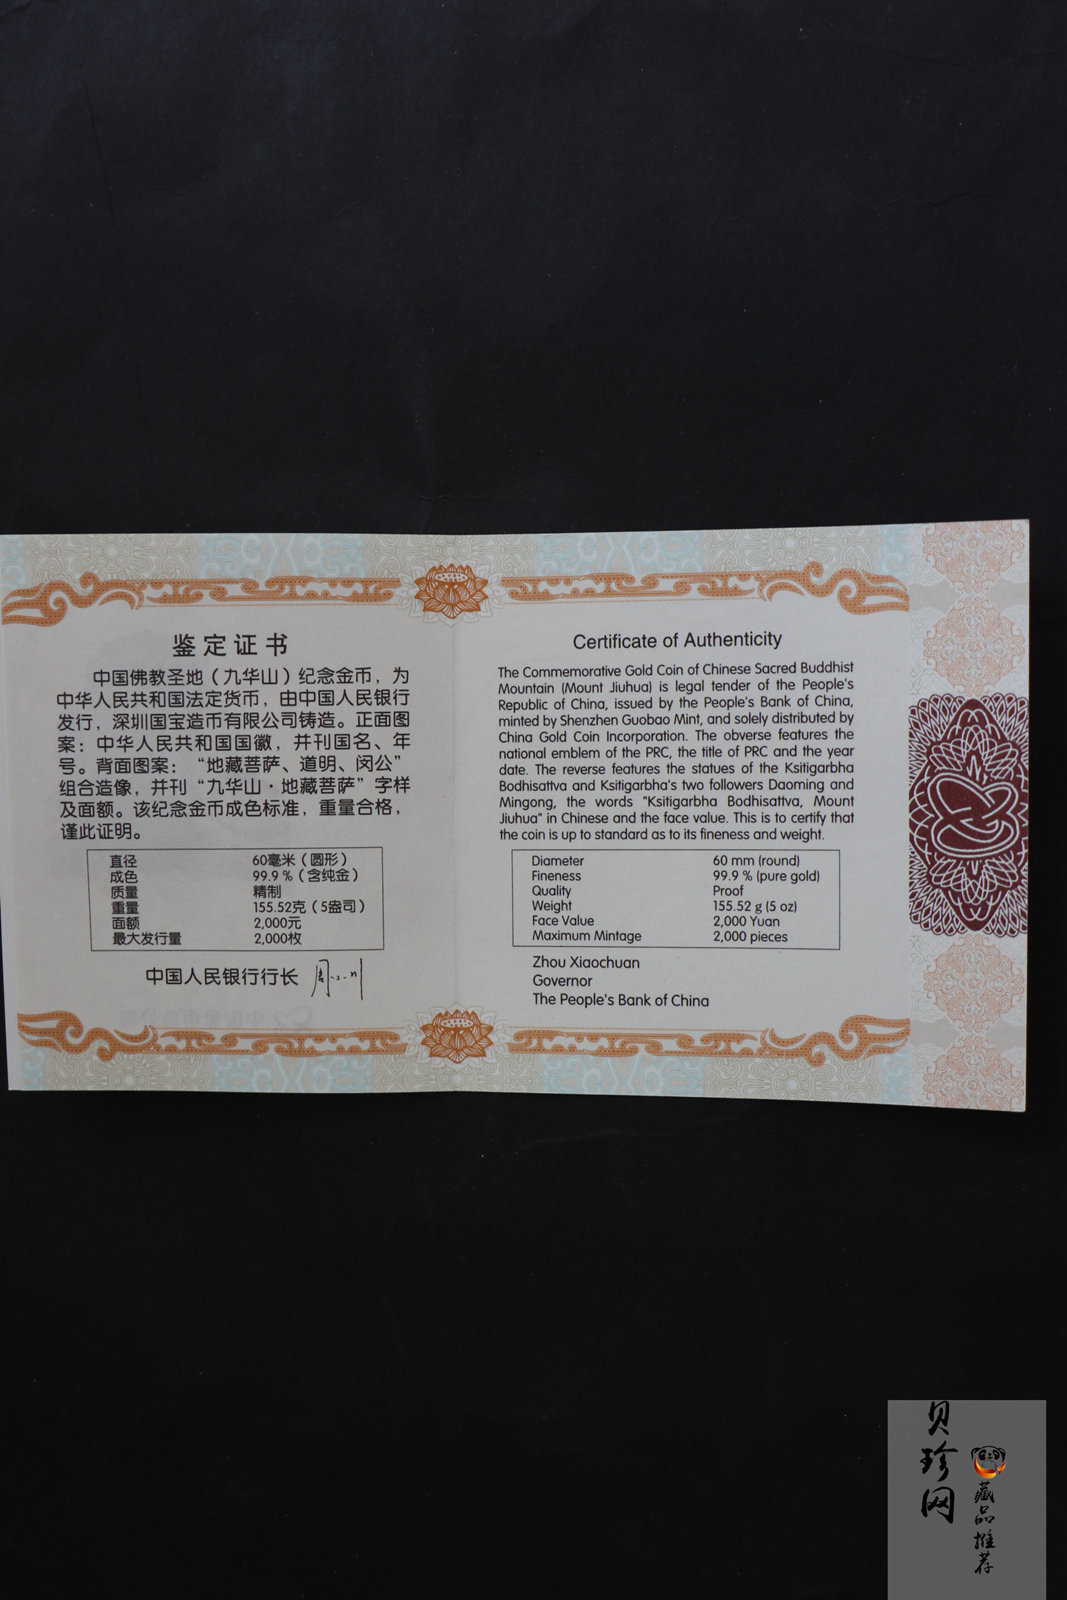 鉴定证书
中国佛教圣地（九华山）纪念金币，为
中华人民共和国法定货币，由中国人民银行
发行，深圳国宝造币有限公司铸造。正面图
案：中华人民共和国国徽，并刊国名、年
号。背面图案：“地藏菩萨、道明、闵公”
组合造像，并刊“九华山·地藏菩萨”字样
及面额。该纪念金币成色标准，重量合格，
谨此证明。
直径 60毫米（圆形）
成色 99.9 %（含纯金）
质量 精制
重量 155.52克（5盎司）
面额 2,000元
最大发行量 2,000枚
中国人民银行行长
Certificate of Authenticity
The Commemorative Gold Coin of Chinese Sacred Buddhist
Mountain (Mount Jiuhua) is legal tender of the People's
Republic of China, issued by the People's Bank of China,
minted by Shenzhen Guobao Mint, and solely distributed by
China Gold Coin Incorporation. The obverse features the
national emblem of the PRC, the title of PRC and the year
date. The reverse features the statues of the Ksitigarbha
Bodhisattva and Ksitigarbha's two followers Daoming and
Mingong, the words "Ksitigarbha Bodhisattva, Mount
Jiuhua" in Chinese and the face value. This is to certify that
the coin is up to standard as to its fineness and weight.
Diameter 60 mm (round)
Fineness 99.9 % (pure gold)
Quality Proof
Weight 155.52 g (5 oz)
Face Value 2,000 Yuan
Maximum Mintage 2,000 pieces
Zhou Xiaochuan
Governor
The People's Bank of China
贝珍网
藏品推荐